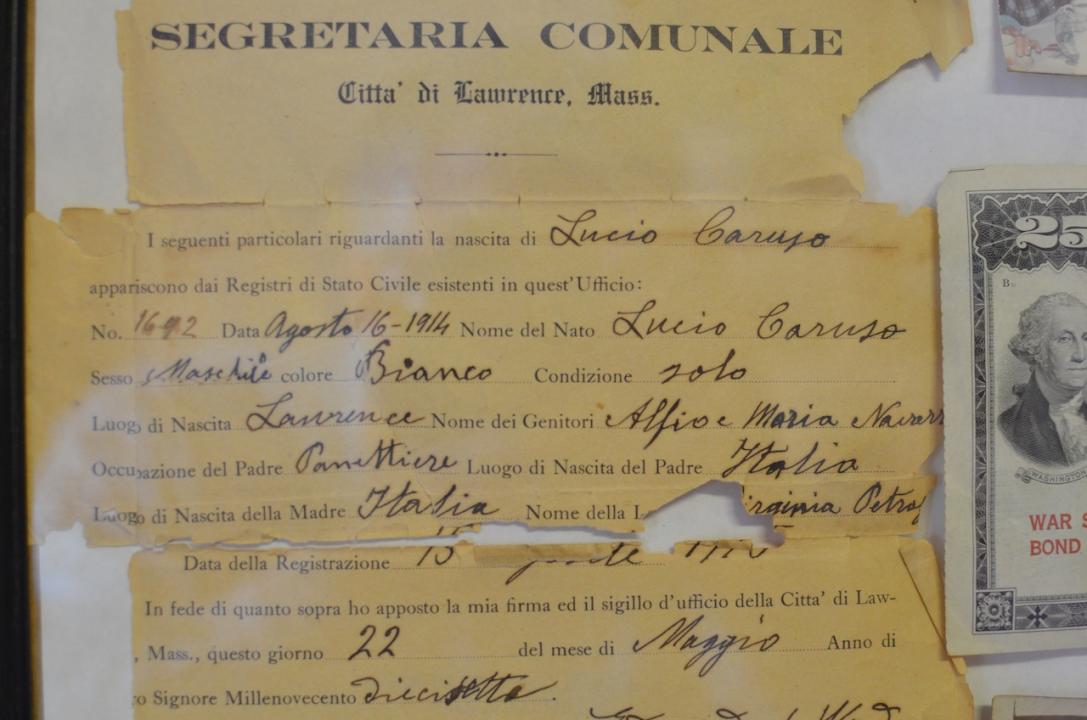 SEGRETARIA COMUNALE
Citta' di Lawrence, Mass.
I seguenti particolari riguardanti la nascita di Lucio Caruso
appariscono dai Registri di Stato Civile esistenti in quest'Ufficio:
No. 1692 Data Agosto 16-1914 Nome del Nato Lucio Caruso
Sesso Maschile colore Bianco Condizione solo
Luogo di Nascita Lawrence Nome dei Genitori Alfio e Maria
Occupazione del Padre Panettiere Luogo di Nascita del Padre Italia
Luogo di Nascita della Madre Italia Nome della
Data della Registrazione 15
In fede di quanto sopra ho apposto la mia firma ed il sigillo d'ufficio della Citta' di Law-
, Mass., questo giorno 22 del mese di Maggio Anno di
Signore Millenovecento diecisette.
25
B
WASHINGTON
WAR
BOND